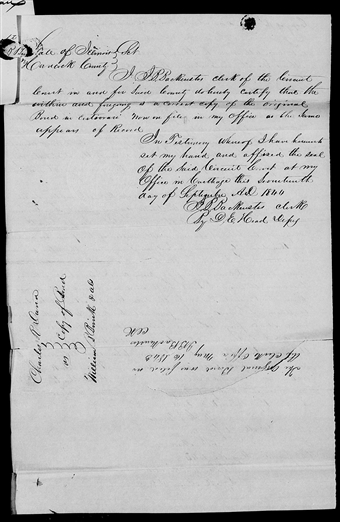 State of Illinois } Sct
Hancock County }
I J B Backenstos clerk of the Circuit
Court in and for said County do hereby certify that the
within and foregoing is a correct copy of the original
Bond as now on file in my office as the same
appears of Record
In Testimony whereof I have hereunto
set my hand and affixed the seal
of the said Circuit Court at my
Office in Carthage this Seventeenth
day of September AD 1844
J B Backenstos clerk
By D E Head Depy
Charles
vs } Copy of Bond
William & als
The original Bond was filed in
my Clerks Office May 16 1843
J B Backenstos
Clk